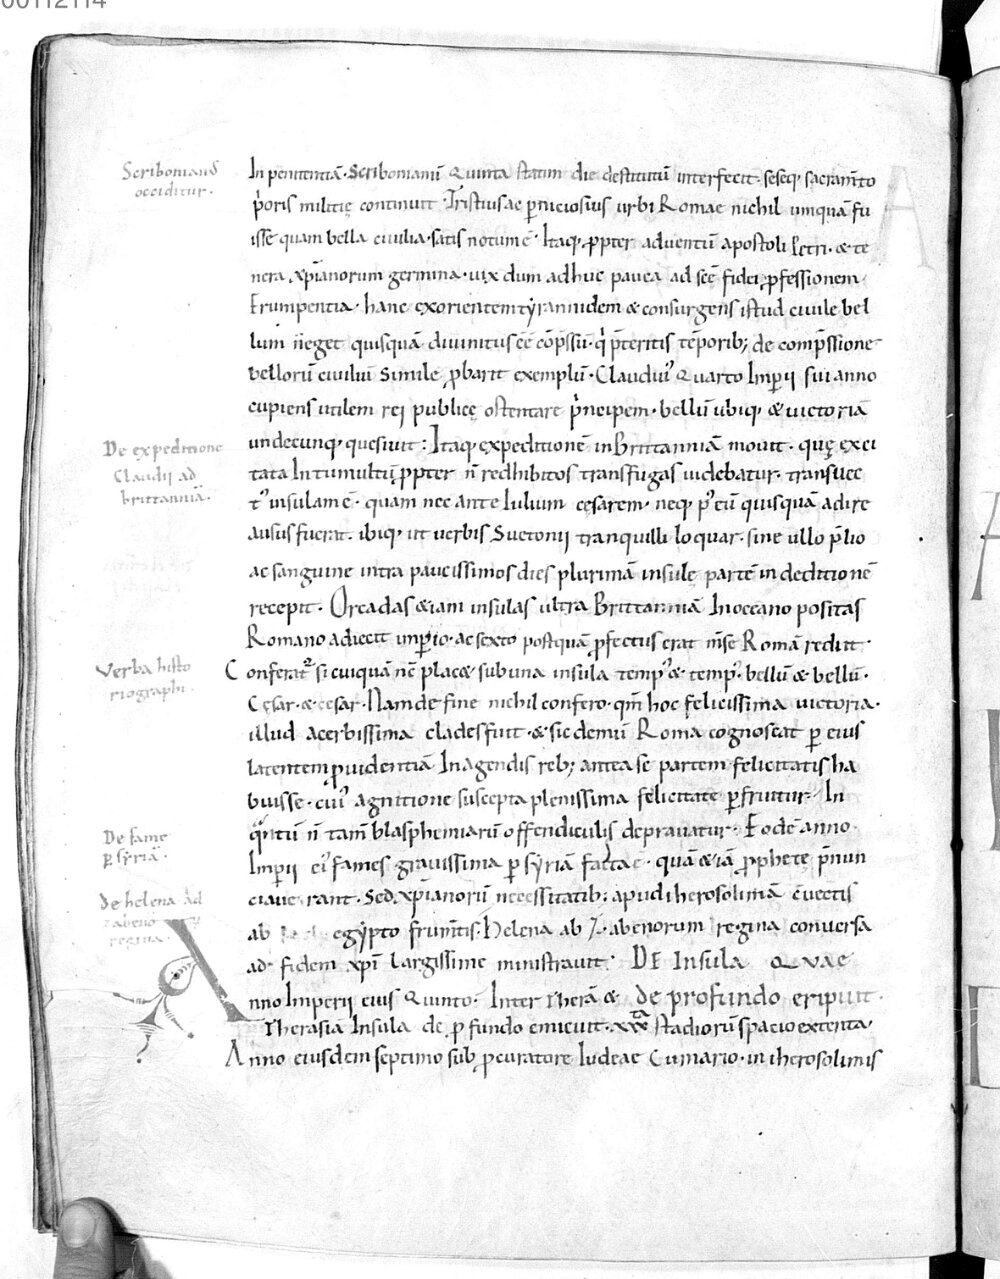 00112114
Scribonianꝰ
occiditur.
In penitentiā. Scribonianū Quinta statim die destitutū interfecit. seseq; sacram̄to
p̓oris militię continuit. Tristius ac ꝑniciosius urbi Romae nichil umquā fu
isse quam bella ciuilia. satis notum ē. Itaq; ꝓpter aduentū apostoli Petri. & te
nera xp̄ianorum germina. uix dum adhuc pauca ad sc̄ē fidei ꝓfessionem
Erumpentia. hanc exorientem tẏrannidem & consurgens istud ciuile bel
lum n̄eget quisquā diuinitus ēē cōp̄ssū. q̓ p̄teritis tēporib; de comp̄ssione
bellorū ciuiliū Simile ꝓbarit exemplū. Claudiuꝰ Quarto Imꝑii sui anno
cupiens utilem rei publicę ostentare p̓ncipem. bellū ubiq; & uictoriā
undecunq; quesiuit: Itaq; expeditionē in Brittanniā mouit. quę exci
tata In tumultū ꝓpter n̄ redhibitos transfugas uidebatur. transuec
tꝰ insulam ē. quam nec ante Iulium cęsarem. neq; pꝰ eū quisquā adire
ausus fuerat. ibiq; ut uerbis Suetonii tranquilli loquar. sine ullo p̄lio
ac sanguine intra paucissimos dies plurimā insulę partē in deditionē
recepit. Orcadas &iam insulas ultra Brittanniā In oceano positas
Romano adiecit imꝑio. ac sexto postquā ꝓfectus erat m̄se Romā rediit.
De expeditione
Claudii ad
brittanniā.
Conferat᷑ si cuiquā n̄c plac& sub una insula tempꝰ & tempꝰ. bellū & bellū.
Cęsar. & cesar. Nam de fine nichil confero. qm̄ hoc felicissima uictoria.
illud acerbissima clades fuit. & sic demū Roma cognoscat ꝑ eius
latentem ꝓuidentiā In agendis reb; antea se partem felicitatis ha
buisse. cuiꝰ agnitione suscepta plenissima felicitate ꝑfruitur. In
qͣntū n̄ tam̄ blasphemiarū offendiculis deprauatur. Eodē anno.
Imꝑii eiꝰ fames grauissima ꝑ sẏriā facta ē. quā &iā ꝓphetę p̄nun
ciaue rant. Sed xp̄ianorū necessitatib; apud iherosolimā euectis
ab egẏpto frum̄tis. Helena abenorum regina conuersa
ad fidem xp̄i largissime ministrauit. DE Insula QVAE
Verba histo
riographi.
De fame
ꝑ sẏriā.
de helena Ad
abeno
regina.
Anno Imperii eius Quinto. Inter Therā & de profundo eripuit.
Therasia Insula de ꝓfundo emicuit. xxx stadiorū spacio extenta.
Anno eiusdem septimo sub ꝓcuratore Iudeae Cumano. in iherosolimis